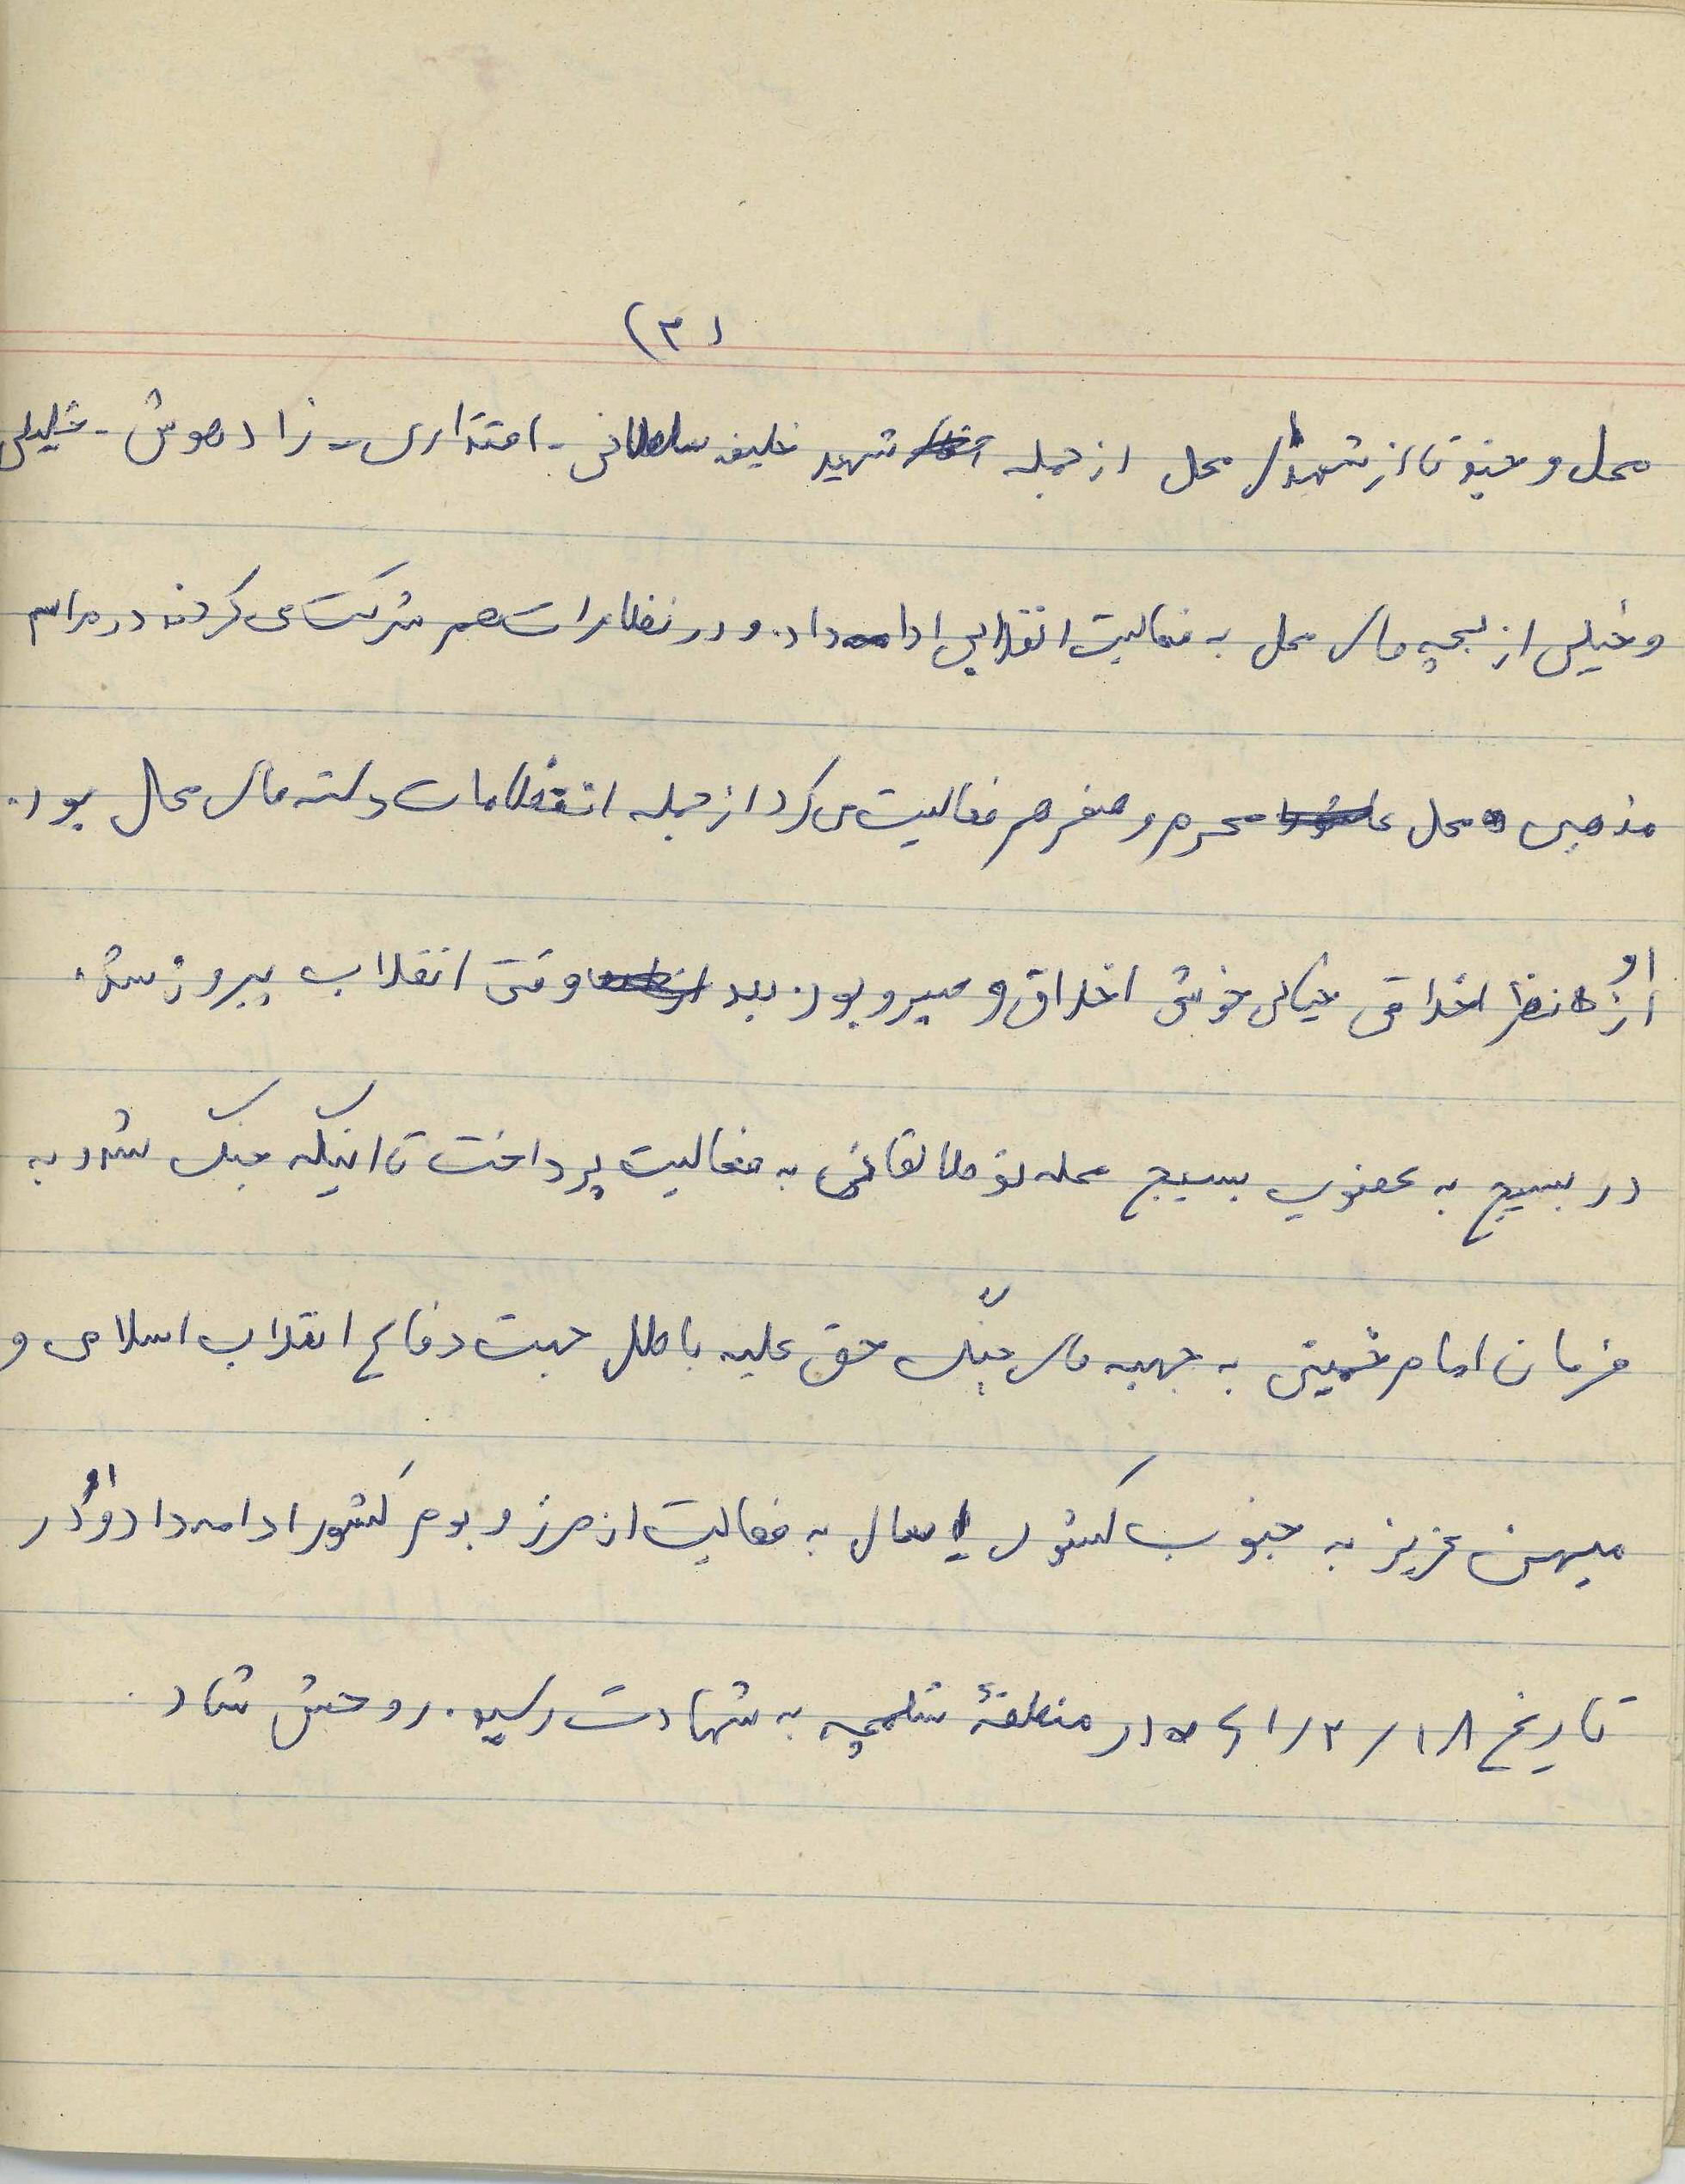 (۳)
محل و چند تا از شهدای محل از جمله شهید خلیفه سلطانی - اقتداری - زادهوش - خلیلی
و خیلی از بچه های محل به فعالیت انقلابی ادامه داد. و در تظاهرات هم شرکت می کردند در مراسم
مذهبی محل محرم و صفر هم فعالیت می کرد از جمله انتظامات دسته های محل بود.
او از نظر اخلاقی خیلی خوش اخلاق و بود. وقتی انقلاب پیروز شد.
در بسیج به عضویت بسیج محله نو طالقانی به فعالیت پرداخت تا اینکه جنگ شد و به
فرمان امام خمینی به جبهه های جنگ حق علیه باطل جهت دفاع انقلاب اسلامی و
میهن عزیز به جنوب کشور سال به فعالیت از مرز و بوم کشور ادامه داد و او در
تاریخ ۱۸/۲/۱۳۶۱ در منطقهٔ شلمچه به شهادت رسید. روحش شاد